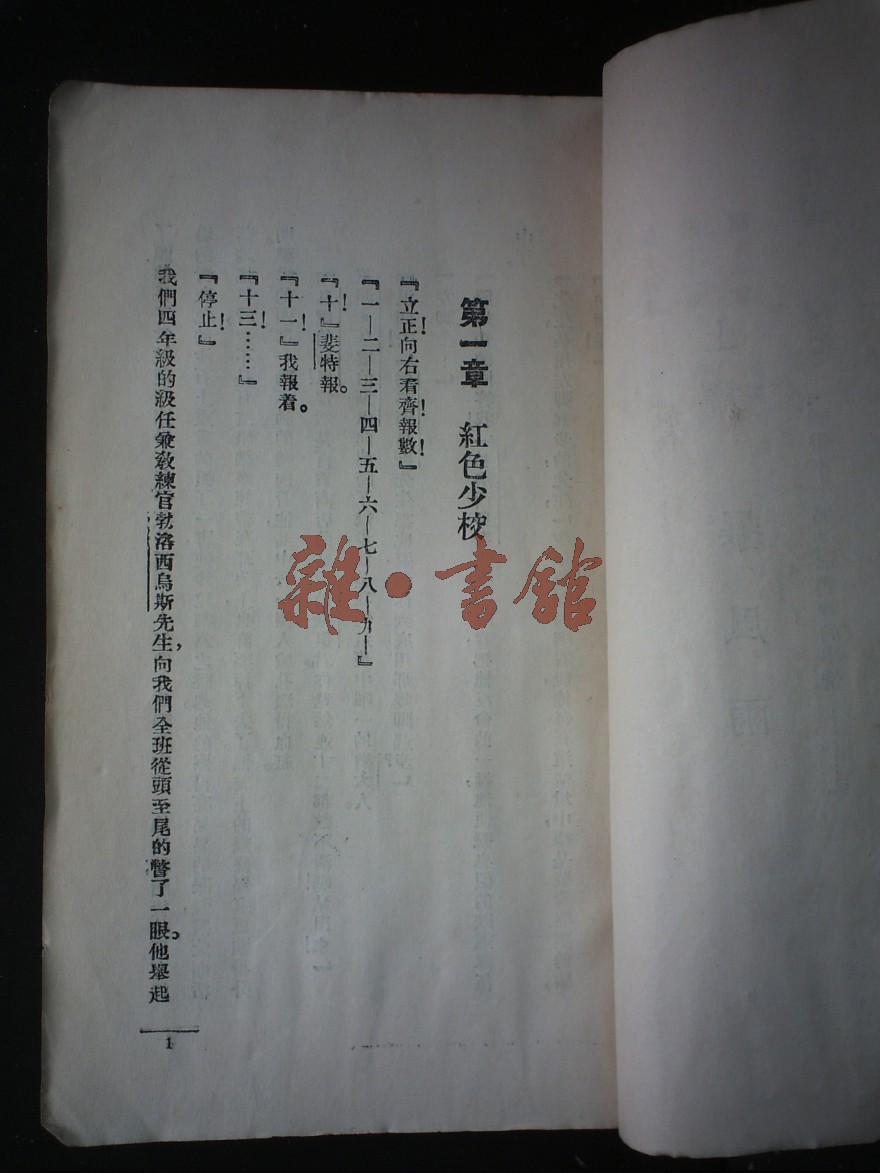 第一章 紅色少校
『立正!向右看齊!報數!』
『一—二—三—四—五—六—七—八—九—』
『十!』斐特報。
『十一!』我報着。
『十三!……』
『停止!』
我們四年級的級任兼教練官勃洛西烏斯先生,向我們全班從頭至尾的瞥了一眼。他舉起
1
雜·書館
風雨